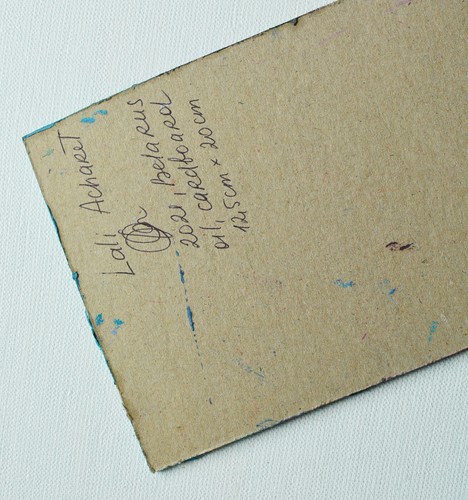 Lali Acharet
2021, Belarus
oil, cardboard
12,5cm x 20cm